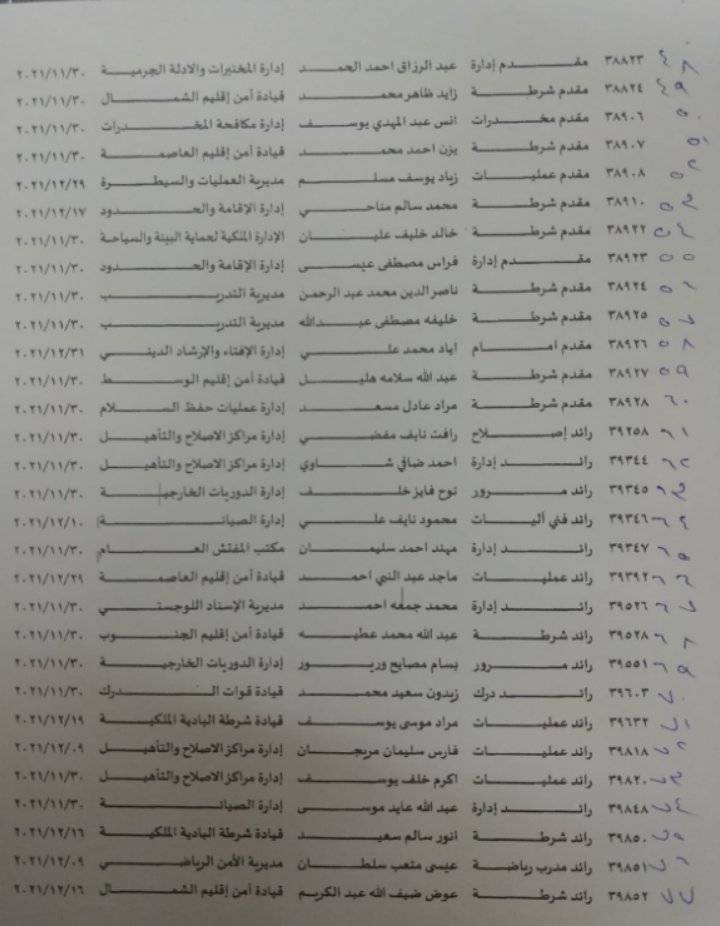 ٤٨ ٣٨٨٢٣ مقدم إدارة عبد الرزاق احمد الحمد إدارة المختبرات والادلة الجرمية ٢٠٢١/١١/٣٠
٤٩ ٣٨٨٢٤ مقدم شرطة زايد ظاهر محمد قيادة أمن إقليم الشمال ٢٠٢١/١١/٣٠
٥٠ ٣٨٩٠٦ مقدم مخدرات انس عبد المهدي يوسف إدارة مكافحة المخدرات ٢٠٢١/١١/٣٠
٥١ ٣٨٩٠٧ مقدم شرطة يزن احمد محمد قيادة أمن إقليم العاصمة ٢٠٢١/١١/٣٠
٥٢ ٣٨٩٠٨ مقدم عمليات زياد يوسف مسلم مديرية العمليات والسيطرة ٢٠٢١/١٢/٢٩
٥٣ ٣٨٩١٠ مقدم شرطة محمد سالم مناحي إدارة الإقامة والحدود ٢٠٢١/١٢/١٧
٥٤ ٣٨٩٢٢ مقدم شرطة خالد خليف عليان الإدارة الملكية لحماية البيئة والسياحة ٢٠٢١/١١/٣٠
٥٥ ٣٨٩٢٣ مقدم إدارة فراس مصطفى عيسى إدارة الإقامة والحدود ٢٠٢١/١١/٣٠
٥٦ ٣٨٩٢٤ مقدم شرطة ناصر الدين محمد عبد الرحمن مديرية التدريب ٢٠٢١/١١/٣٠
٥٧ ٣٨٩٢٥ مقدم شرطة خليفه مصطفى عبدالله مديرية التدريب ٢٠٢١/١١/٣٠
٥٨ ٣٨٩٢٦ مقدم امام اياد محمد علي إدارة الإفتاء والإرشاد الديني ٢٠٢١/١٢/٣١
٥٩ ٣٨٩٢٧ مقدم شرطة عبد الله سلامه هليل قيادة أمن إقليم الوسط ٢٠٢١/١١/٣٠
٦٠ ٣٨٩٢٨ مقدم شرطة مراد عادل مسعد إدارة عمليات حفظ السلام ٢٠٢١/١١/٣٠
٦١ ٣٩٢٥٨ رائد إصلاح رافت نايف مفضي إدارة مراكز الاصلاح والتأهيل ٢٠٢١/١١/٣٠
٦٢ ٣٩٣٤٤ رائد إدارة احمد ضافي شاوي إدارة مراكز الاصلاح والتأهيل ٢٠٢١/١١/٣٠
٦٣ ٣٩٣٤٥ رائد مرور نوح فايز خلف إدارة الدوريات الخارجية ٢٠٢١/١١/٣٠
٦٤ ٣٩٣٤٦ رائد فني أليات محمود نايف علي إدارة الصيانة ٢٠٢١/١٢/١٠
٦٥ ٣٩٣٤٧ رائد إدارة مهند احمد سليمان مكتب المفتش العام ٢٠٢١/١١/٣٠
٦٦ ٣٩٣٩٢ رائد عمليات ماجد عبد النبي احمد قيادة أمن إقليم العاصمة ٢٠٢١/١٢/٢٩
٦٧ ٣٩٥٢٦ رائد إدارة محمد جمعه احمد مديرية الإسناد اللوجستي ٢٠٢١/١١/٣٠
٦٨ ٣٩٥٢٨ رائد شرطة عبد الله محمد عطيه قيادة أمن إقليم الجنوب ٢٠٢١/١١/٣٠
٦٩ ٣٩٥٥١ رائد مرور بسام مصايح ورور إدارة الدوريات الخارجية ٢٠٢١/١١/٣٠
٧٠ ٣٩٦٠٣ رائد درك زيدون سعيد محمد قيادة قوات الدرك ٢٠٢١/١١/٣٠
٧١ ٣٩٦٣٢ رائد عمليات مراد موسى يوسف قيادة شرطة البادية الملكية ٢٠٢١/١٢/١٩
٧٢ ٣٩٨١٨ رائد عمليات فارس سليمان مريجان إدارة مراكز الاصلاح والتأهيل ٢٠٢١/١٢/٠٩
٧٣ ٣٩٨٢٠ رائد عمليات اكرم خلف يوسف إدارة مراكز الاصلاح والتأهيل ٢٠٢١/١١/٣٠
٧٤ ٣٩٨٤٨ رائد إدارة عبد الله عايد موسى إدارة الصيانة ٢٠٢١/١١/٣٠
٧٥ ٣٩٨٥٠ رائد شرطة انور سالم سعيد قيادة شرطة البادية الملكية ٢٠٢١/١٢/١٦
٧٦ ٣٩٨٥١ رائد مدرب رياضة عيسى متعب سلطان مديرية الأمن الرياضي ٢٠٢١/١٢/٠٩
٧٧ ٣٩٨٥٢ رائد شرطة عوض ضيف الله عبد الكريم قيادة أمن إقليم الشمال ٢٠٢١/١٢/١٦